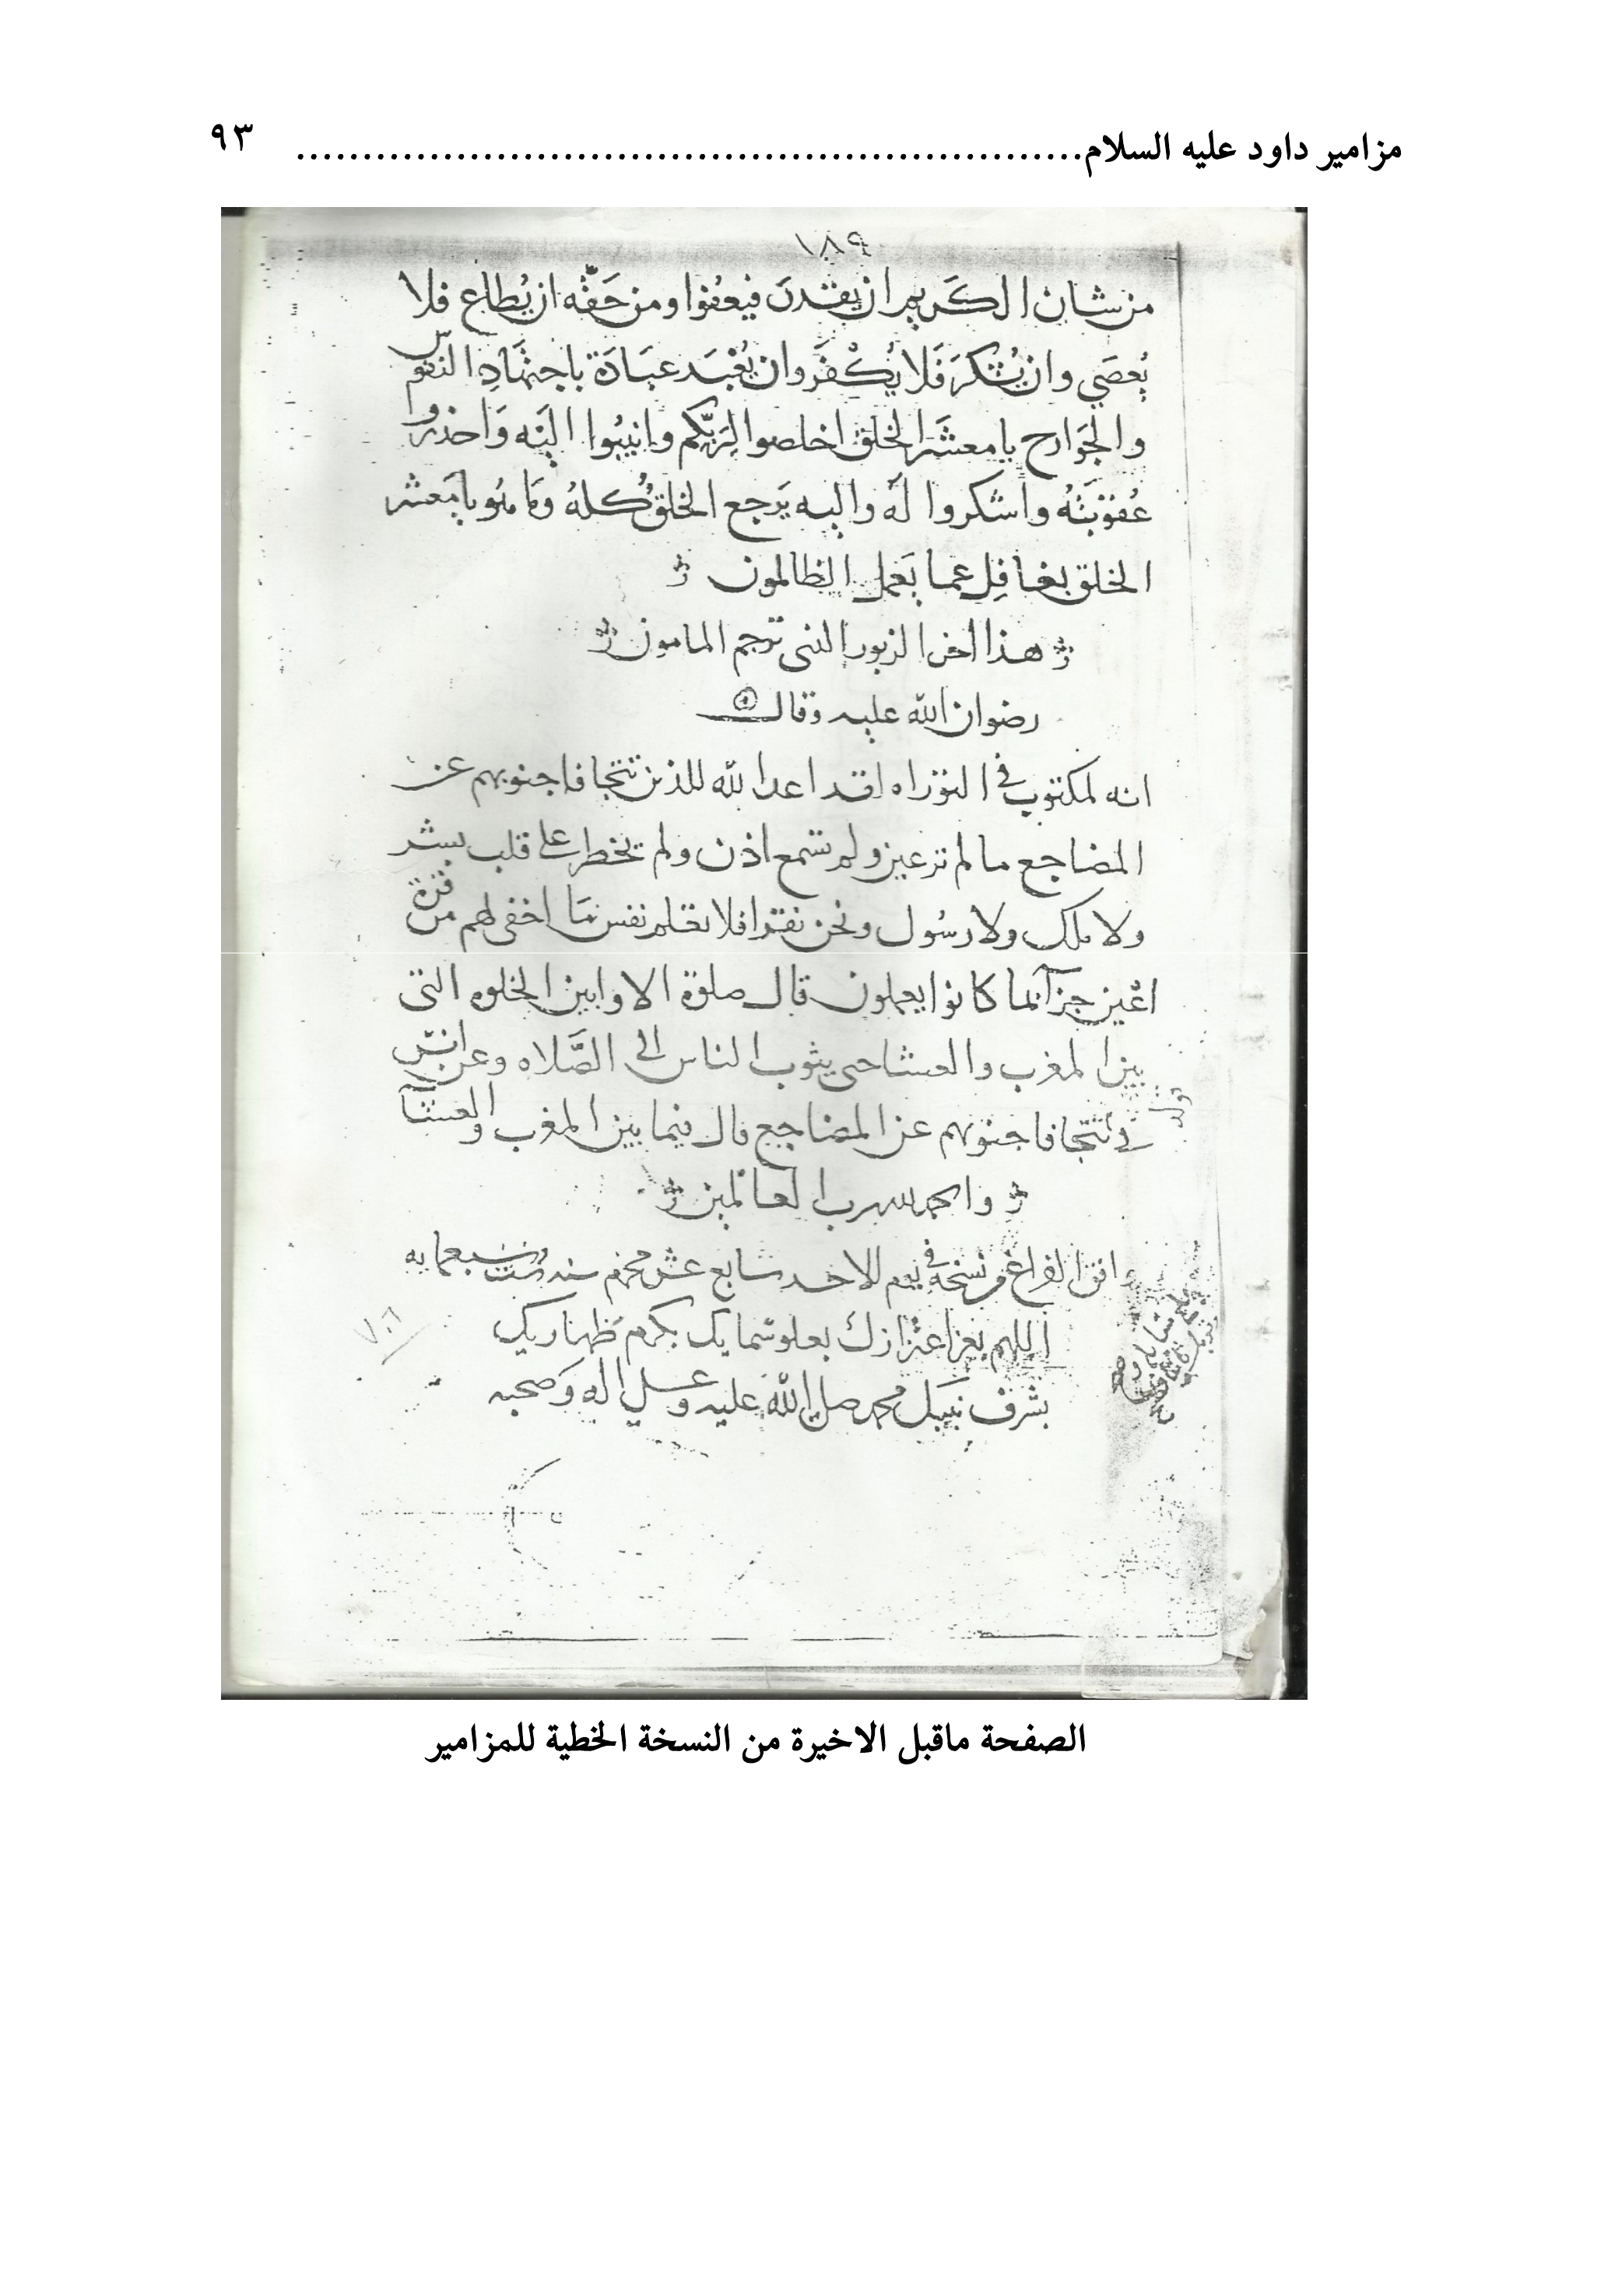 مزامير داود عليه السلام........................................................ ٩٣
١٨٩
من شان الكريم ان يقدر فيعفوا ومن حَقّه ان يُطاع فلا
يُعصَي وان يُشكرَ فَلا يُكْفَر وان يُعْبَد عبَادَة باجتهَادِ النفوس
والجَوَارح يا معشَر الخلق اخلصوا لِرَبّكم وانيبُوا اليَه وَاحذروا
عُقوبَتَهُ واشكروا لَه واليه يَرجع الخلق كُله وَمَا هُو يا مَعشر
الخلق بغافِل عما يَعمل الظالمون
هذا اخر الزبور الذى ترجم المامون
رضوان الله عليه وقال
انه لمكتوب في التوراه لقد اعد الله للذين تتجافا جنوبهم عن
المضاجع ما لم تر عين ولم تسمع اذن ولم يخطر على قلب بشر
ولا ملك ولا رسُول ونحن نقرا فلا تعلم نفس مَا اخفى لهم من قرة
اعْين جزآ بما كانوا يعملون قال صلوة الاوابين الخلوه التى
بين المغرب والعشا حتى يثوب الناس الى الصَّلاه وعن انس
قوله
في تتجافا جنوبهم عن المضاجع قال فيما بين المغرب والعشآ
والحمد لله رب العالمين
وافق الفراغ من نسخه في يوم الاحد سابع عشر محرم سنه ست وسبعمايه
٧٠٦
اللهم بعز اعتزازك بعلو سمايك بكرم
بشرف نبيك محمد صلى الله عليه وعلى اله وَصحبه
الصفحة ماقبل الاخيرة من النسخة الخطية للمزامير